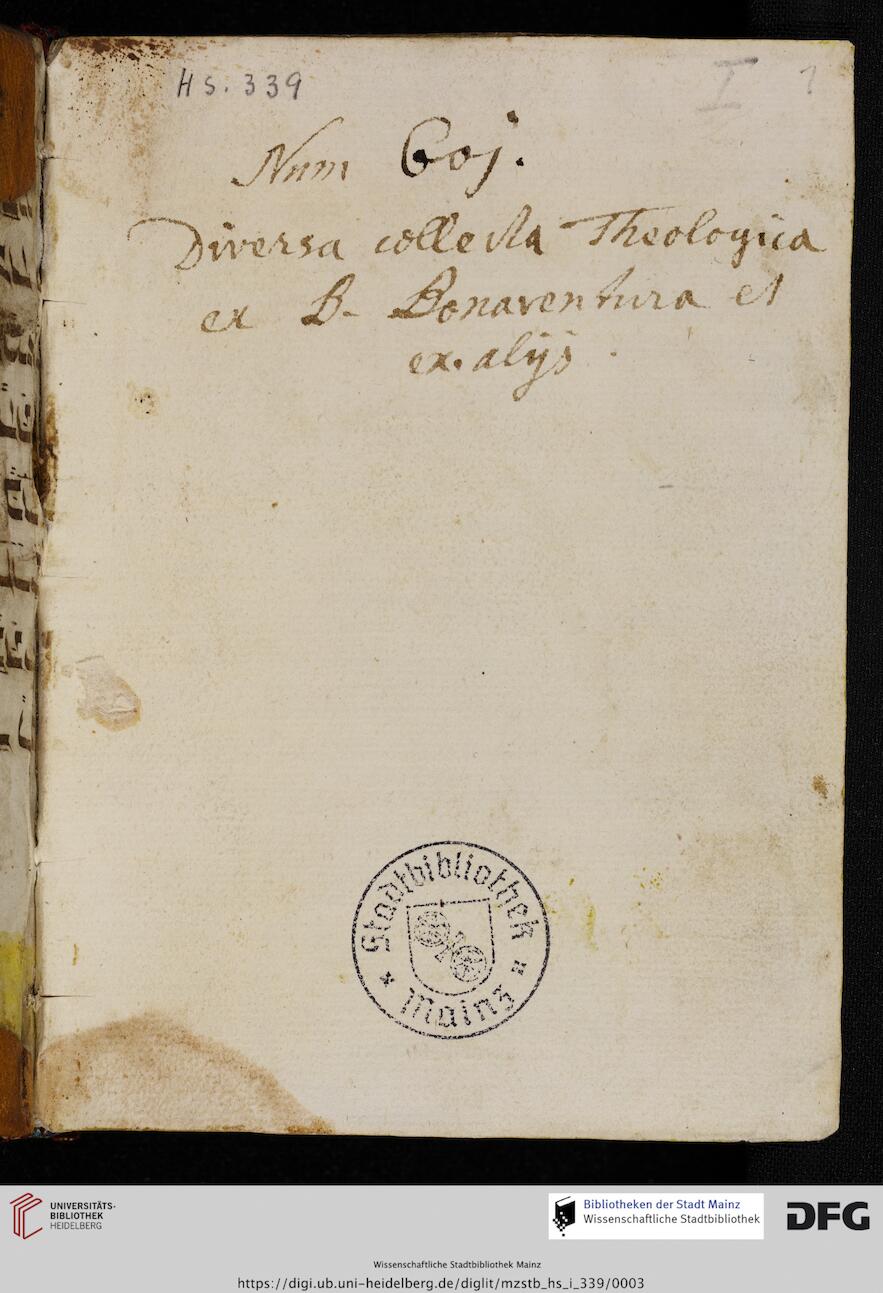 Hs. 339
I 1
Num 60j.
Diversa collecta Theologica
ex B. Bonaventura et
ex. alijs.
Stadtbibliothek
* Mainz *
UNIVERSITÄTS-
BIBLIOTHEK
HEIDELBERG
Bibliotheken der Stadt Mainz
Wissenschaftliche Stadtbibliothek
DFG
Wissenschaftliche Stadtbibliothek Mainz
https://digi.ub.uni-heidelberg.de/diglit/mzstb_hs_i_339/0003